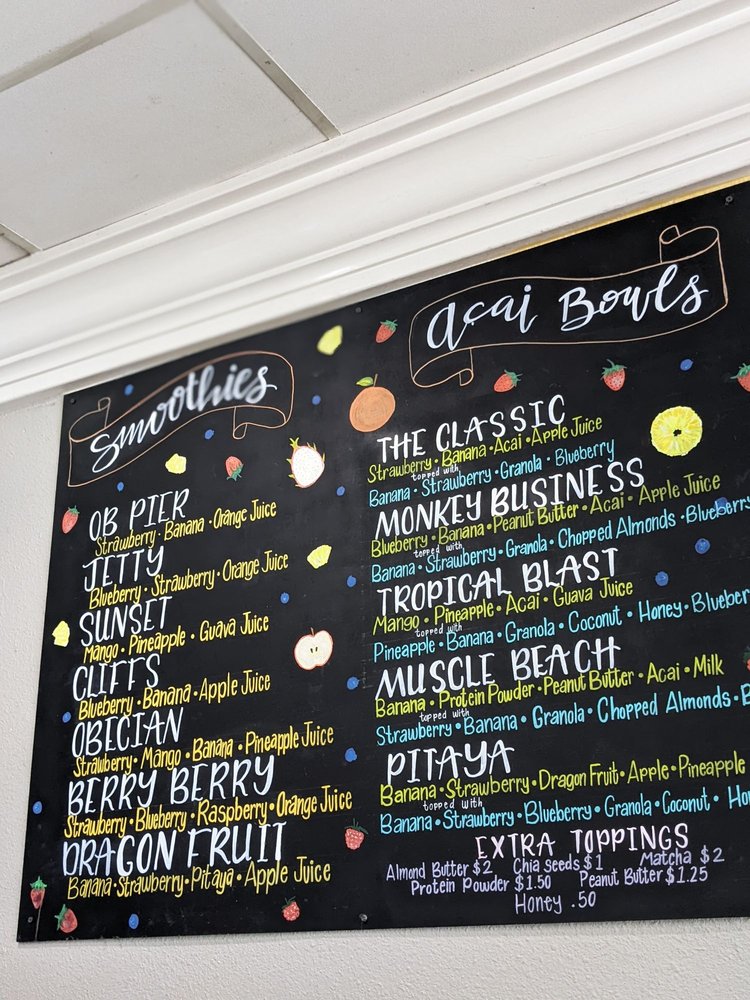 Smoothies
OB PIER
Strawberry · Banana · Orange Juice
JETTY
Blueberry · Strawberry · Orange Juice
SUNSET
Mango · Pineapple · Guava Juice
CLIFFS
Blueberry · Banana · Apple Juice
OBECIAN
Strawberry · Mango · Banana · Pineapple Juice
BERRY BERRY
Strawberry · Blueberry · Raspberry · Orange Juice
DRAGON FRUIT
Banana · Strawberry · Pitaya · Apple Juice
Açai Bowls
THE CLASSIC
Strawberry · Banana · Acai · Apple Juice
topped with
Banana · Strawberry · Granola · Blueberry
MONKEY BUSINESS
Blueberry · Banana · Peanut Butter · Acai · Apple Juice
topped with
Banana · Strawberry · Granola · Chopped Almonds · Blueberry
TROPICAL BLAST
Mango · Pineapple · Acai · Guava Juice
topped with
Pineapple · Banana · Granola · Coconut · Honey · Blueberr
MUSCLE BEACH
Banana · Protein Powder · Peanut Butter · Acai · Milk
topped with
Strawberry · Banana · Granola · Chopped Almonds · B
PITAYA
Banana · Strawberry · Dragon Fruit · Apple · Pineapple
topped with
Banana · Strawberry · Blueberry · Granola · Coconut · Ho
EXTRA TOPPINGS
Almond Butter $2 Chia seeds $1 Matcha $2
Protein Powder $1.50 Peanut Butter $1.25
Honey .50